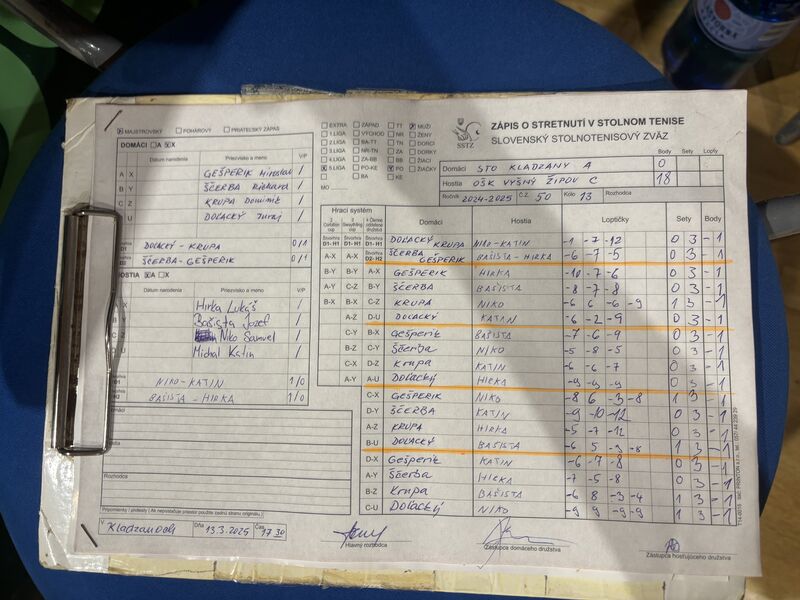 ZÁPIS O STRETNUTÍ V STOLNOM TENISE
SLOVENSKÝ STOLNOTENISOVÝ ZVÄZ
SSTZ
MAJSTROVSKÝ POHÁROVÝ PRIATEĽSKÝ ZÁPAS
EXTRA ZÁPAD TT MUŽI
1.LIGA VÝCHOD NR ŽENY
2.LIGA BA-TT TN DORCI
3.LIGA NR-TN ZA DORKY
4.LIGA ZA-BB BB ŽIACI
5.LIGA PO-KE PO ŽIAČKY
BA KE
MO
Body Sety Lopty
Domáci STO KLADZANY A 0
Hostia OŠK VYŠNÝ ŽIPOV C 18
Ročník 2024-2025 Č.Z. 50 Kolo 13 Rozhodca
DOMÁCI A X
Dátum narodenia Priezvisko a meno V/P
A X GEŠPERIK Miroslav /
B Y ŠČERBA Richard /
C Z KRUPA Dominik /
D U DOLACKÝ Juraj /
D1 DOLACKÝ - KRUPA 0/1
ŠČERBA - GEŠPERIK 0/1
HOSTIA A X
Dátum narodenia Priezvisko a meno V/P
Hirka Lukáš
Bašista Jozef
Niko Samuel
Michal Katin
NIKO-KATIN 1/0
BAŠISTA - HIRKA 1/0
Rozhodca
Pripomienky / protesty ( Ak nepostačuje priestor použite zadnú stranu originálu.)
V Kladzanoch Dňa 13.3.2025 Čas 17 30
Hrací systém Domáci Hostia Loptičky Sety Body
Štvorhra D1- H1 DOLACKÝ KRUPA NIKO-KATIN -1 -7 -12 0 3 -1
A-X ŠČERBA GEŠPERIK BAŠISTA-HIRKA -6 -7 -5 0 3 -1
B-Y B-Y A-X GEŠPERIK HIRKA -10 -7 -6 0 3 -1
C-Z C-Z B-Y ŠČERBA BAŠISTA -8 -7 -8 0 3 -1
B-X B-X C-Z KRUPA NIKO -6 6 -6 -9 1 3 -1
A-Z D-U DOLACKÝ KATIN -6 -2 -9 0 3 -1
C-Y B-X Gešperik BAŠISTA -7 -6 -9 0 3 -1
B-Z C-Y Ščerba NIKO -5 -8 -5 0 3 -1
C-X D-Z Krupa KATIN -6 -6 -7 0 3 -1
A-Y A-U DOLACKÝ HIRKA -9 -9 -9 0 3 -1
C-X GEŠPERIK NIKO -8 6 -3 -8 1 3 -1
D-Y ŠČERBA KATIN -9 -10 -12 0 3 -1
A-Z KRUPA HIRKA -5 -7 -12 0 3 -1
B-U DOLACKÝ BAŠISTA -6 5 -3 -8 1 3 -1
D-X Gešperik KATIN -6 -7 -8 0 3 -1
A-Y Ščerba HIRKA -7 -5 -8 0 3 -1
B-Z Krupa BAŠISTA -6 8 -3 -4 1 3 -1
C-U DOLACKÝ NIKO -9 -9 -9 0 3 -1
Hlavný rozhodca
Zástupca domáceho družstva
Zástupca hosťujúceho družstva